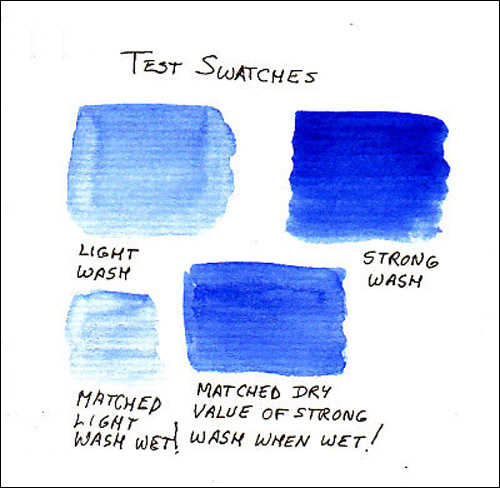 TEST SWATCHES
LIGHT
WASH
STRONG
WASH
MATCHED
LIGHT
WASH WET!
MATCHED DRY
VALUE OF STRONG
WASH WHEN WET!